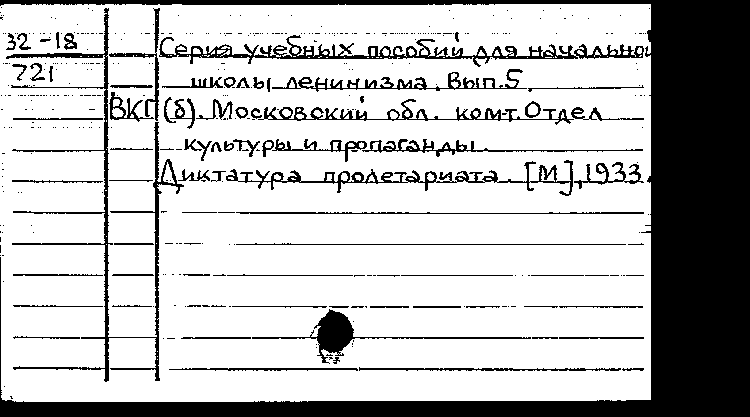 32-18 Серия учебных пособий для начальной
721 школы ленинизма. Вып.5.
ВКП(б). Московский обл. комт. Отдел
культуры и пропаганды.
Диктатура пролетариата. [М], 1933.